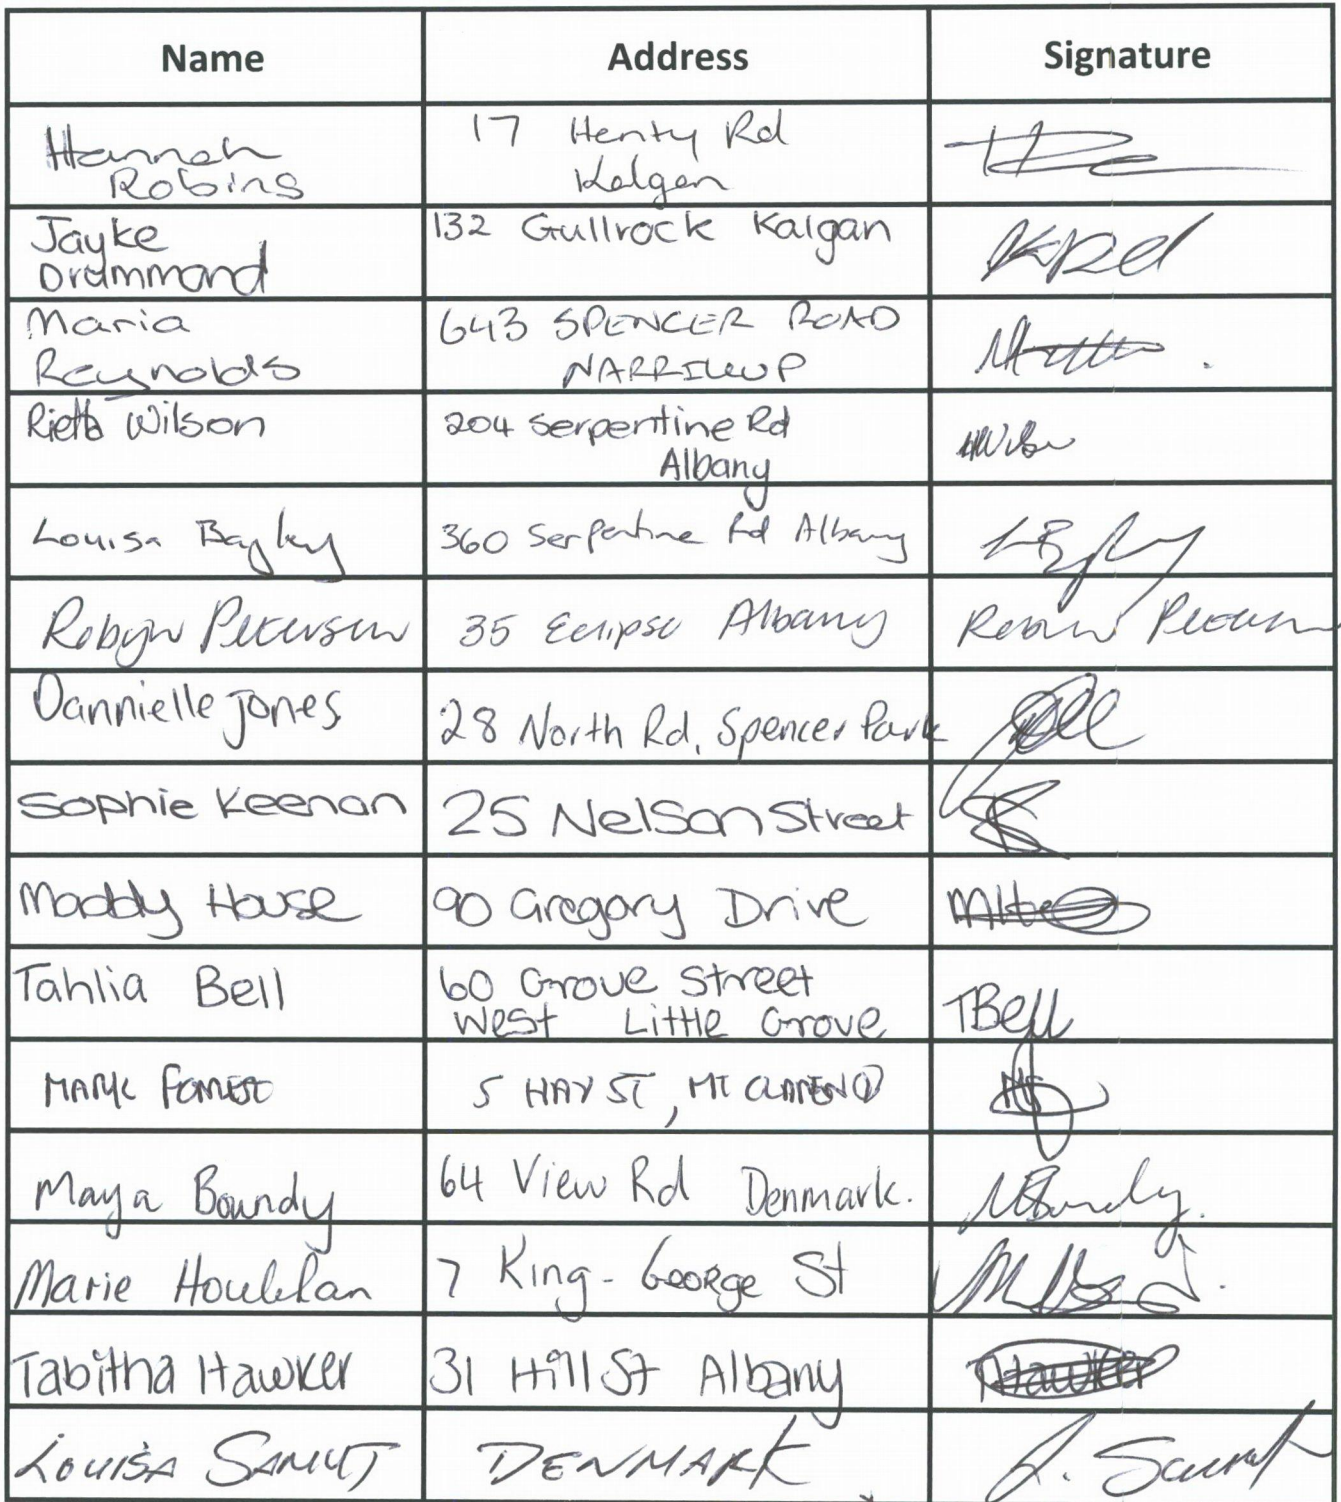 Name Address Signature
Hannah 17 Henty Rd
Robins Kalgan
Jayke 132 Gullrock Kalgan
Drummond
Maria 643 SPENCER ROAD
Reynolds NARRIKUP
Rietta Wilson 204 Serpentine Rd
Albany
Louisa Bagley 360 Serpentine Rd Albany
Robyn Petersen 35 Eclipse Albany
Dannielle Jones 28 North Rd, Spencer Park
Sophie Keenan 25 Nelson Street
Maddy House 90 Gregory Drive
Tahlia Bell 60 Grove Street
West Little Grove TBell
MARK FORREST 5 HAY ST, MT CLARENCE
Maya Boundy 64 View Rd Denmark. MBoundy.
Marie Houlahan 7 King-George St
Tabitha Hawker 31 Hill St Albany THawker
LOUISA SAMUT DENMARK